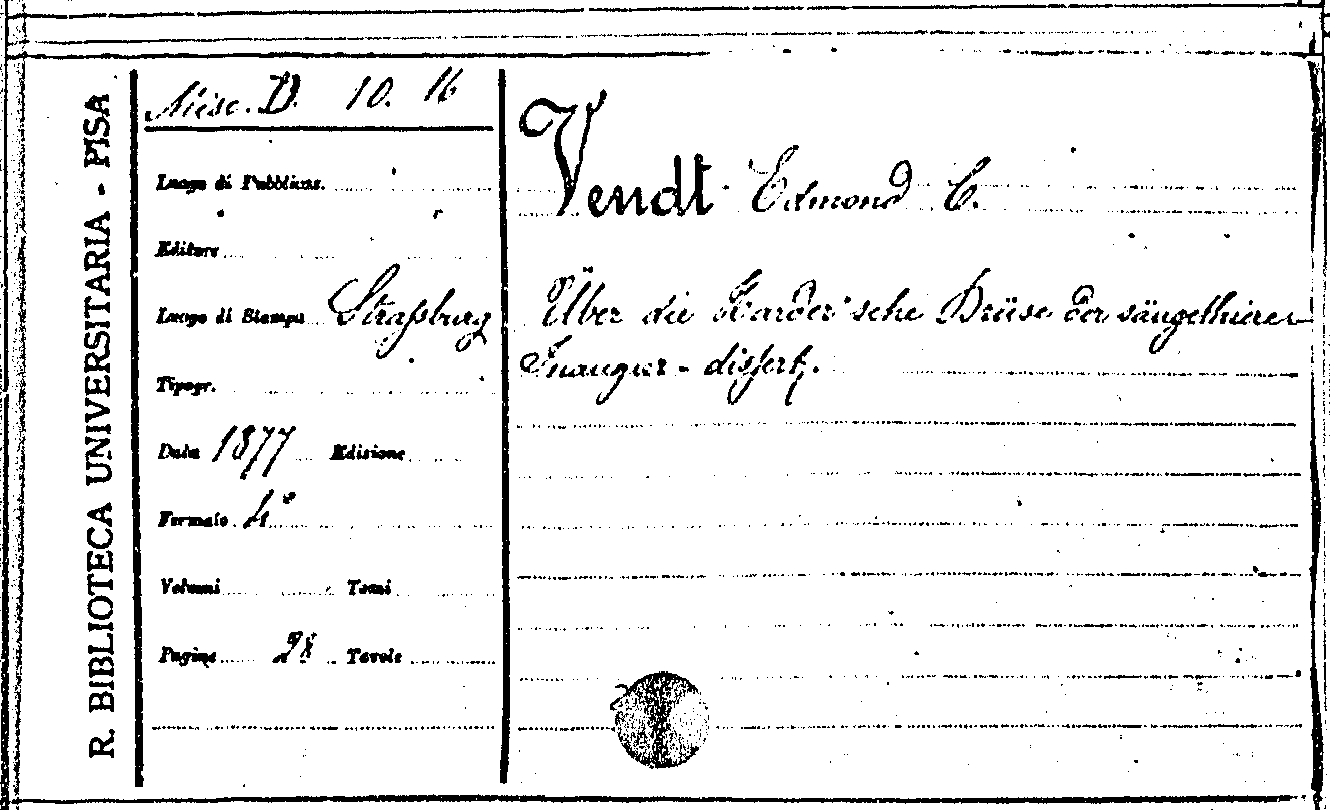 R. BIBLIOTECA UNIVERSITARIA - PISA
Misc. D. 10. 16
Luogo di Pubblicaz.
Editore
Luogo di Stampa Straßburg
Tipogr.
Data 1877 Edizione
Formato 4°
Volumi Tomi
Pagine 28 Tavole
Vendt Edmond C.
Über die Harder'sche Drüse der säugethierer
Inaugur - dissert.